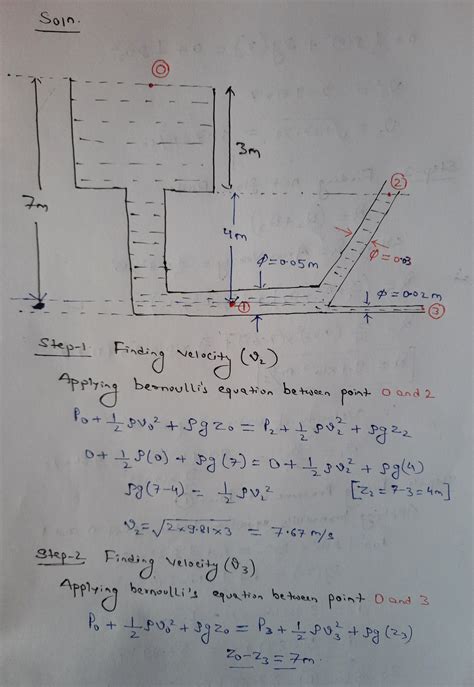 Soln.
0
3m
2
7m
4m
φ=0.05m
φ=0.03
φ=0.02m
1
3
Step-1 Finding velocity (v₂)
Applying bernoulli's equation between point 0 and 2
P₀ + 1/2 ρv₀² + ρgz₀ = P₂ + 1/2 ρv₂² + ρgz₂
0 + 1/2 ρ(0) + ρg(7) = 0 + 1/2 ρv₂² + ρg(4)
ρg(7-4) = 1/2 ρv₂² [z₂ = 7-3 = 4m]
v₂ = √2×9.81×3 = 7.67 m/s
Step-2 Finding velocity (v₃)
Applying bernoulli's equation between point 0 and 3
P₀ + 1/2 ρv₀² + ρgz₀ = P₃ + 1/2 ρv₃² + ρg(z₃)
z₀-z₃ = 7m